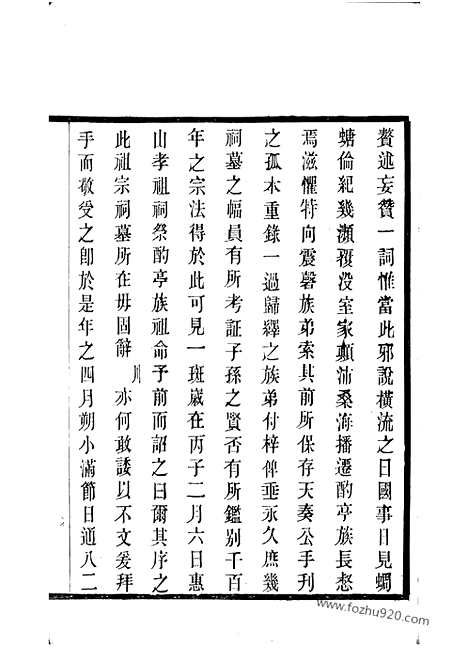 贅述妄贊一詞惟當此邪說橫流之日國事日見蜩
螗倫紀幾瀕覆没室家頻沛桑海播遷酌亭族長惄
焉滋懼特向震磬族弟索其前所保存天奏公手刋
之孤本重錄一過歸繹之族弟付梓俾垂永久庶幾
祠墓之幅員有所考証子孫之賢否有所鑑别千百
年之宗法得於此可見一斑歲在丙子二月六日惠
山孝祖祠祭酌亭族祖命予前而詔之曰爾其序之
此祖宗祠墓所在毋固辭 川 亦何敢諉以不文爰拜
手而敬受之卽於是年之四月朔小滿節日通八二
www.fozhu920.com